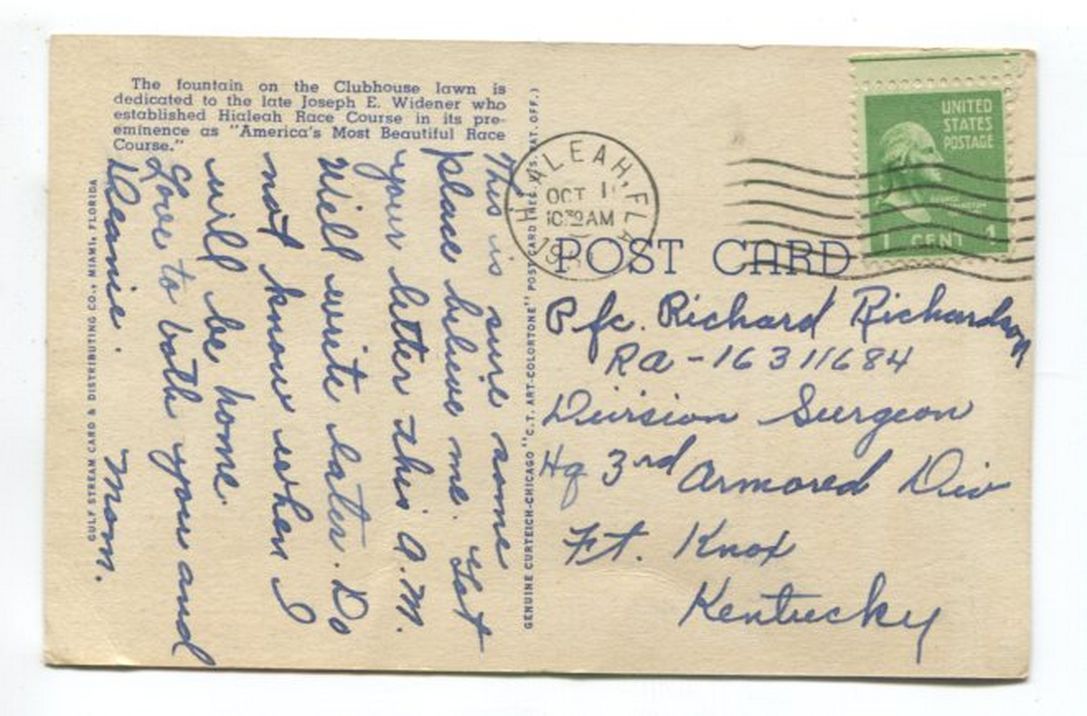 The fountain on the Clubhouse lawn is
dedicated to the late Joseph E. Widener who
established Hialeah Race Course in its pre-
eminence as "America's Most Beautiful Race
Course."
This is sure some
place believe me. Got
your letter this A.M.
Will write later. Do
not know when I
will be home.
Love to both you and
Deanie.
Mom.
GULF STREAM CARD & DISTRIBUTING CO., MIAMI, FLORIDA
GENUINE CURTEICH-CHICAGO "C.T. ART-COLORTONE" POST CARD (REG. U.S. PAT. OFF.)
HIALEAH, FLA.
OCT 1
10 30 AM
POST CARD
UNITED
STATES
POSTAGE
1 CENT 1
Pfc. Richard Richardson
RA-16311684
Division Surgeon
Hq 3rd Armored Div
Ft. Knox
Kentucky